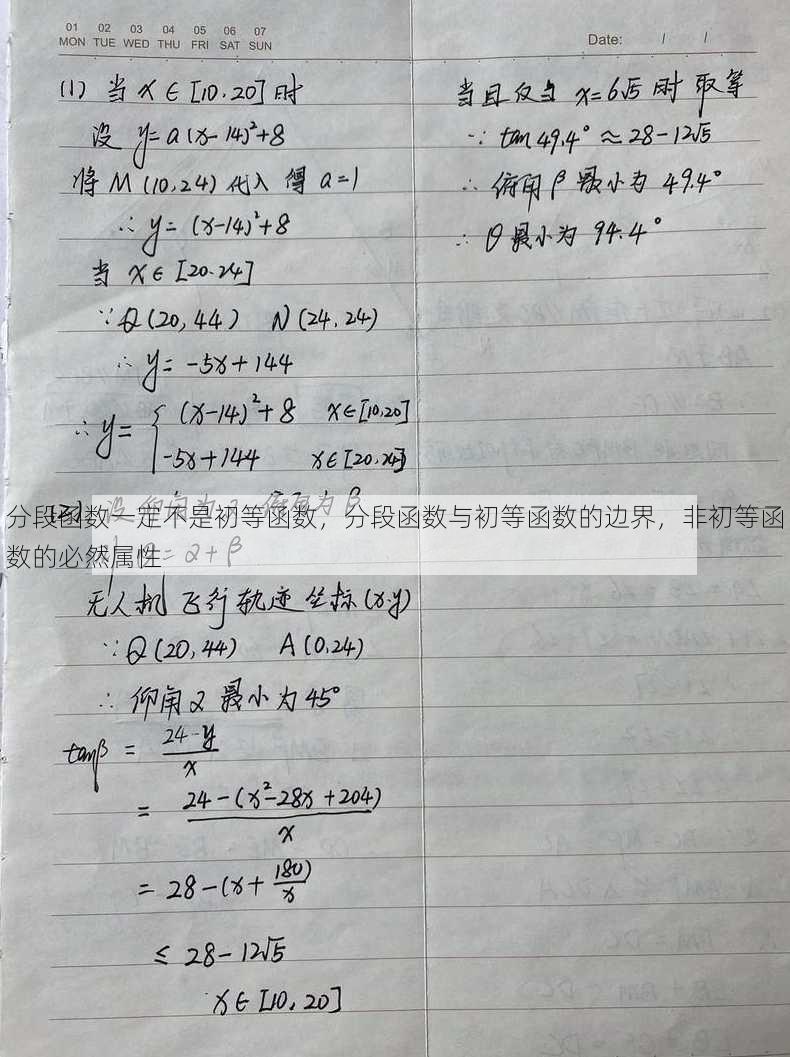 01 02 03 04 05 06 07
MON TUE WED THU FRI SAT SUN
Date: / /
(1) 当 x∈[10.20]时
设 y=a(x-14)²+8
将 M(10,24) 代入 得 a=1
∴ y=(x-14)²+8
当 x∈[20.24]
∵Q(20,44) N(24,24)
∴ y=-5x+144
∴ y={ (x-14)²+8 x∈[10,20]
-5x+144 x∈[20,24]
(2) 设 仰角为 α 俯角为 β
分段函数一定不是初等函数，分段函数与初等函数的边界，非初等函
数的必然属性
= α+β
无人机 飞行 轨迹 坐标(x.y)
∵Q(20,44) A(0,24)
∴ 仰角α 最小为 45°
tanβ = (24-y)/x
= (24-(x²-28x+204))/x
= 28-(x+180/x)
≤ 28-12√5
x∈[10,20]
当且仅当 x=6√5 时 取等
∵ tan49.4°≈28-12√5
∴ 俯角β 最小为 49.4°
∴ θ最小为 94.4°